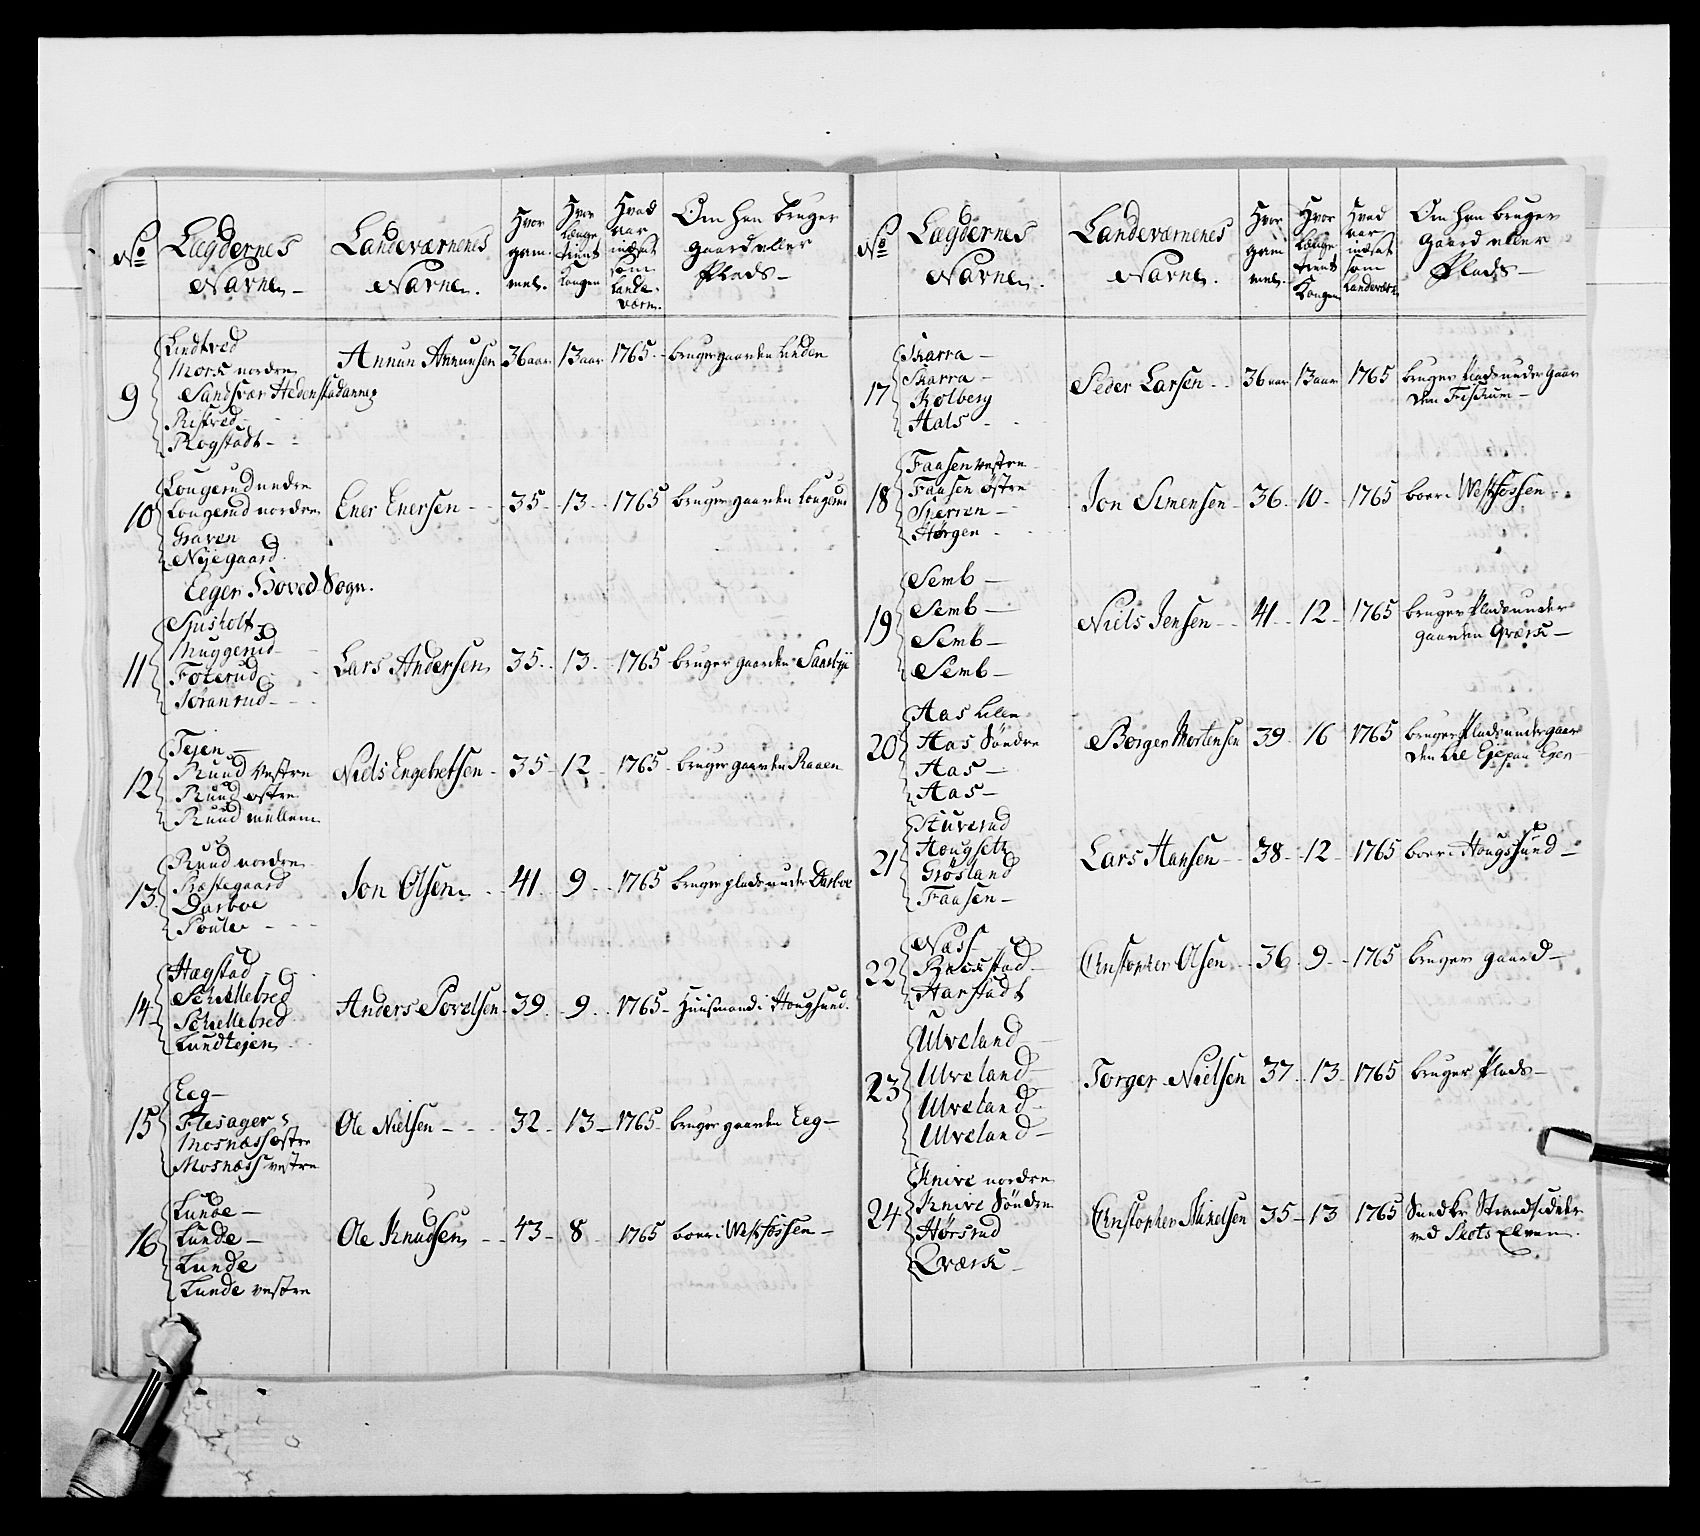 No
Lægdernes
Navne
Landeværnenes
Navne
Hvor
gam-
mel
Hvor
længe
tient
Kongen
Hvad
aar
indsat
som
Lande-
værn
Om han bruger
gaard eller
Plads
9
Lindtved
Mork nordre
Sandsvær Hedenstad annex
Ristved
Rogstadt
Annun Annunsen 36 aar 13 aar 1765 bruger gaarden Linden
10
Lougerud nedre
Lougerud nordre
Graven
Nyegaard
Ener Enersen 35 13 1765 bruger gaarden Lougerud
Eeger Hoved Sogn.
11
Spisholt
Muggerud
Foterud
Joranrud
Lars Andersen 35 13 1765 bruger gaarden
12
Teien
Ruud Vestre
Ruud østre
Ruud mellem
Niels Engebretsen 35 12 1765 bruger gaarden Raaen
13
Ruud nordre
Præstegaard
Darboe
Jon Olsen 41 9 1765 bruger plads under Darboe
14
Hægstad
Schellebred
Schellebred
Lundteien
Anders Povelsen 39 9 1765 Huusmand i Hougsund
15
Eeg
Flesager
Mosnæss østre
Mosnæss vestre
Ole Nielsen 32 13 1765 bruger gaarden Eeg
16
Lunde
Lunde
Lunde
Lunde vestre
Ole Knudsen 43 8 1765 boer i Westfossen
No
Lægdernes
Navne
Landeværnenes
Navne
Hvor
gam
mel
Hvor
længe
tient
Kongen
Hvad
aar
indsat
som
Landeværn
Om han bruger
Gaard eller
Plads
17
Skarra
Skarra
Kolberg
Hals
Peder Larsen 36 aar 13 aar 1765 bruger Plads under Gaar
den Fiskum
18
Faasen vestre
Faasen østre
Hørgen
Jon Simensen 36 10 1765 boer i Westfossen
19
Semb
Semb
Semb
Semb
Niels Jensen 41 12 1765 bruger Plads under
gaarden Qværk
20
Aas Lille
Aas Søndre
Aas
Aas
Børger Mortensen 39 16 1765 bruger Plads under gaar
den
21
Stuverud
Hougsetz
Grøsland
Faasen
Lars Hansen 38 12 1765 boer i Hougssund
22
Næss
Harstadt
Christopher Olsen 36 9 1765 bruger gaard
23
Ulveland
Ulveland
Ulveland
Ulveland
Torger Nielsen 37 13 1765 bruger Plads
24
Knive nordre
Knive Søndre
Hørsrud
Qværk
Christopher Mikelsen 35 13 1765
ved Skots Elven